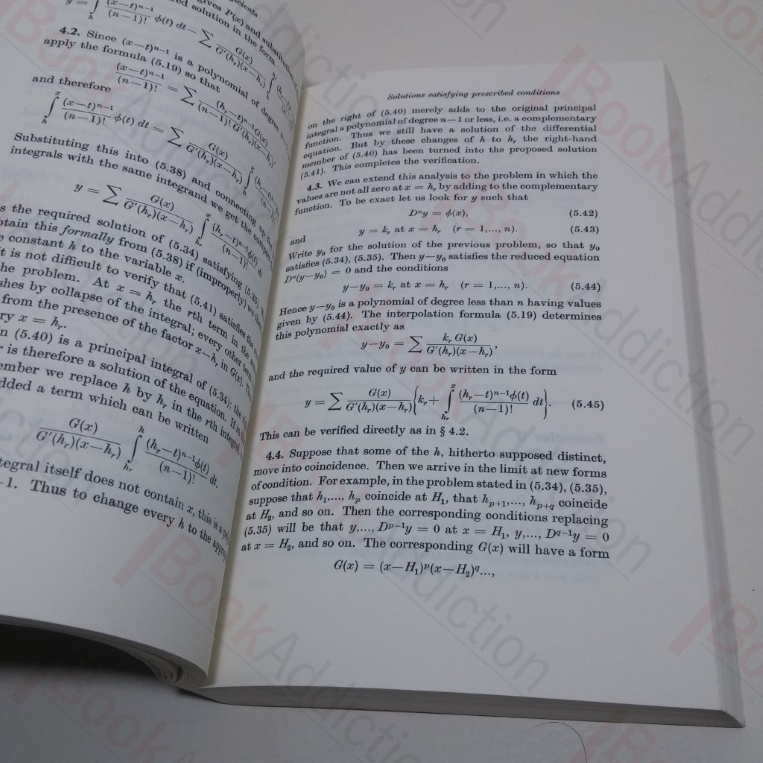 y = ∫ (x−t)ⁿ⁻¹/(n−1)! ϕ(t) dt − ∑ G(x)/G′(hᵣ)(x−hᵣ)
4.2. Since (x−t)ⁿ⁻¹ is a polynomial of degree
apply the formula (5.19) so that
(x−t)ⁿ⁻¹/(n−1)! = ∑ (hᵣ−t)ⁿ⁻¹G(x)/(n−1)! G′(hᵣ)(x−hᵣ)
and therefore
∫ (x−t)ⁿ⁻¹/(n−1)! ϕ(t) dt = ∑ G(x)/G′(hᵣ)(x−hᵣ) ∫
Substituting this into (5.38) and connecting up the
integrals with the same integrand we get the
y = ∑ G(x)/G′(hᵣ)(x−hᵣ) ∫ (hᵣ−t)ⁿ⁻¹ϕ(t)/(n−1)! dt
s the required solution of (5.34) satisfying (5.35).
tain this formally from (5.38) if (improperly) we
constant h to the variable x.
t is not difficult to verify that (5.41) satisfies the
he problem. At x = hᵣ the rth term in the
shes by collapse of the integral; every other
from the presence of the factor x−hᵣ in G(x).
ry x = hᵣ.
n (5.40) is a principal integral of (5.34); the
r is therefore a solution of the equation. If in
ember we replace h by hᵣ in the rth integral
dded a term which can be written
G(x)/G′(hᵣ)(x−hᵣ) ∫ʰₕᵣ (hᵣ−t)ⁿ⁻¹ϕ(t)/(n−1)! dt.
tegral itself does not contain x, this is a
−1. Thus to change every h to the
Solutions satisfying prescribed conditions
on the right of (5.40) merely adds to the original principal
integral a polynomial of degree n−1 or less, i.e. a complementary
function. Thus we still have a solution of the differential
equation. But by these changes of h to hᵣ the right-hand
member of (5.40) has been turned into the proposed solution
(5.41). This completes the verification.
4.3. We can extend this analysis to the problem in which the
values are not all zero at x = hᵣ by adding to the complementary
function. To be exact let us look for y such that
Dⁿy = ϕ(x), (5.42)
and y = kᵣ at x = hᵣ (r = 1,..., n). (5.43)
Write y₀ for the solution of the previous problem, so that y₀
satisfies (5.34), (5.35). Then y−y₀ satisfies the reduced equation
Dⁿ(y−y₀) = 0 and the conditions
y−y₀ = kᵣ at x = hᵣ (r = 1,..., n). (5.44)
Hence y−y₀ is a polynomial of degree less than n having values
given by (5.44). The interpolation formula (5.19) determines
this polynomial exactly as
y−y₀ = ∑ kᵣ G(x)/G′(hᵣ)(x−hᵣ),
and the required value of y can be written in the form
y = ∑ G(x)/G′(hᵣ)(x−hᵣ) {kᵣ + ∫ˣₕᵣ (hᵣ−t)ⁿ⁻¹ϕ(t)/(n−1)! dt}. (5.45)
This can be verified directly as in § 4.2.
4.4. Suppose that some of the h, hitherto supposed distinct,
move into coincidence. Then we arrive in the limit at new forms
of condition. For example, in the problem stated in (5.34), (5.35),
suppose that h₁,..., hₚ coincide at H₁, that hₚ₊₁,..., hₚ₊q coincide
at H₂, and so on. Then the corresponding conditions replacing
(5.35) will be that y,..., Dᵖ⁻¹y = 0 at x = H₁, y,..., D^{q−1}y = 0
at x = H₂, and so on. The corresponding G(x) will have a form
G(x) = (x−H₁)ᵖ(x−H₂)^q...,
BookAddiction